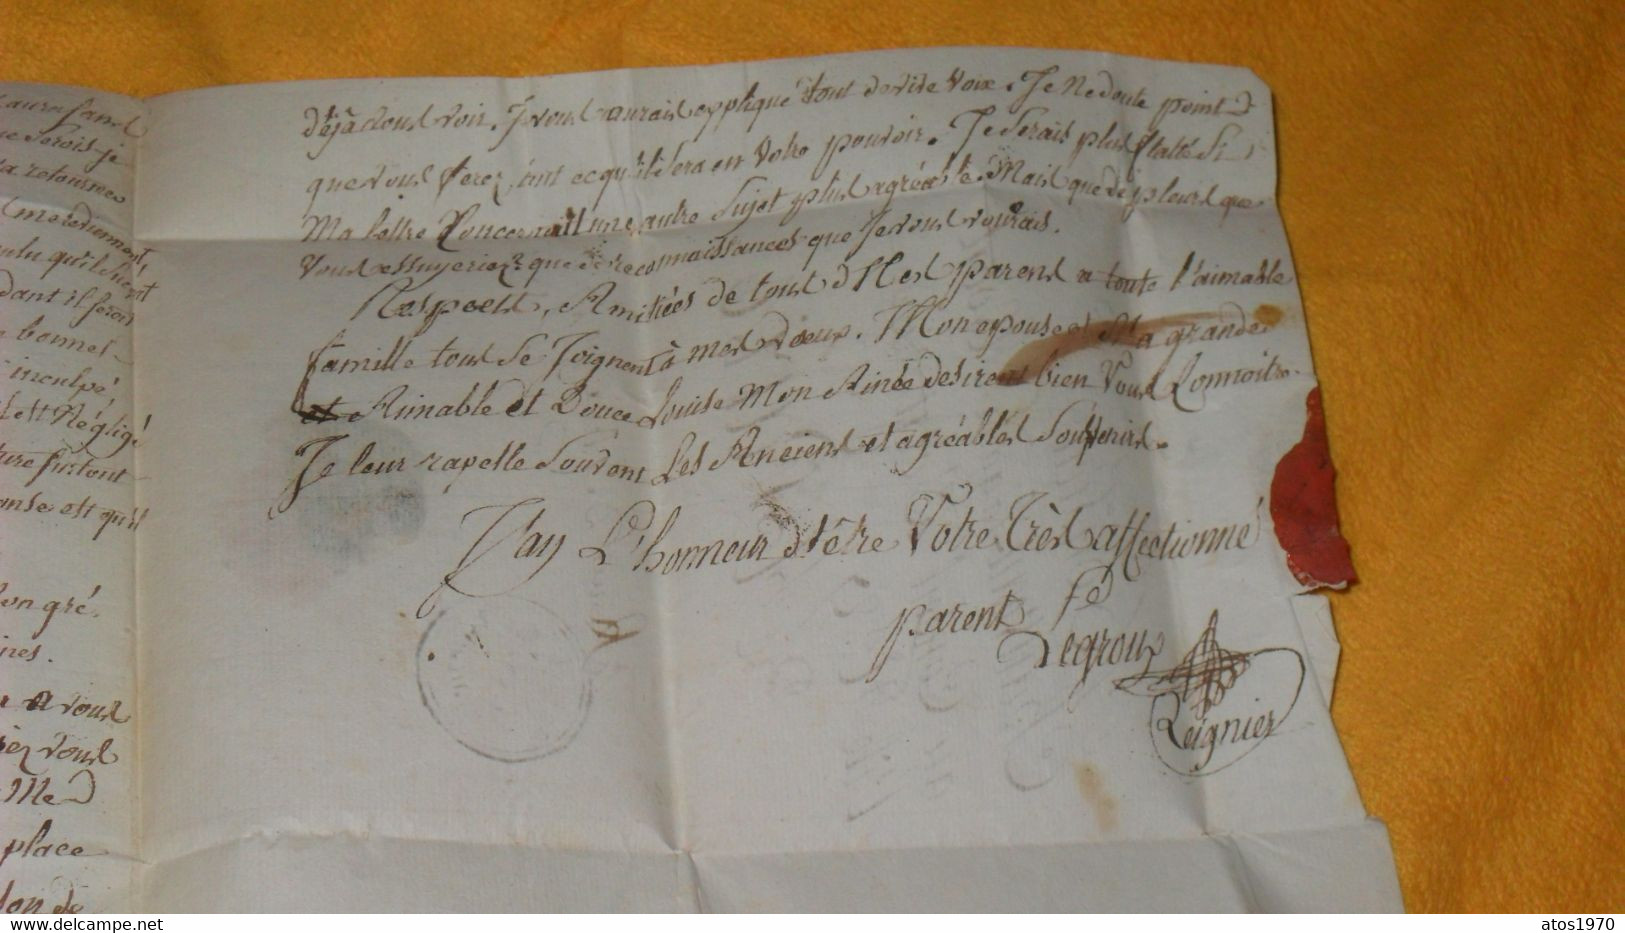 Laure sans
ne serois je
la retournee
mordiument
oulu qu'il
dant il seroit
bonnet
inculpé
est Négligé
ture surtout
anse est qu'il
bon gré.
ires.
a vous
riez vous
Me
place
don de
déjà vous voir. Je vous aurais expliqué tout de vive Voix. Je Ne doute point
que vous ferez, tant cequ'il sera en Votre pouvoir. Je Serais plus flatté Si
Ma lettre Concernait une autre Sujet plus agréable. Mais que de pleurs que
Vous essuyeriez, que de reconnaissances que Je vous vourais.
Respects, Amitiés de tous Mes parens a toute l'aimable
famille tous Se Joignent à mes voeux. Mon epouse et Ma grande
et Aimable et Douce Louise Mon Ainée desirent bien Vous Connoitre.
Je leur rapelle Souvent Les Anciens et agréables Souvenirs.
J'ay L'honneur d'être Votre Très affectionné
parent
Legroux
Reignier
atos1970